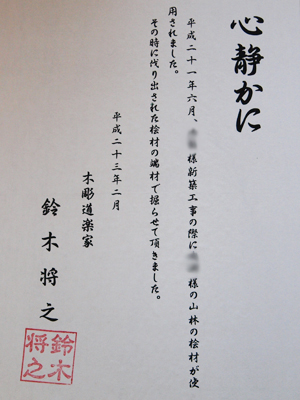 心静かに
平成二十一年六月、 様新築工事の際に 様の山林の桧材が使
用されました。
その時に伐り出された桧材の端材で掘らせて頂きました。
平成二十三年二月
木彫道楽家
鈴木将之
鈴木
将之